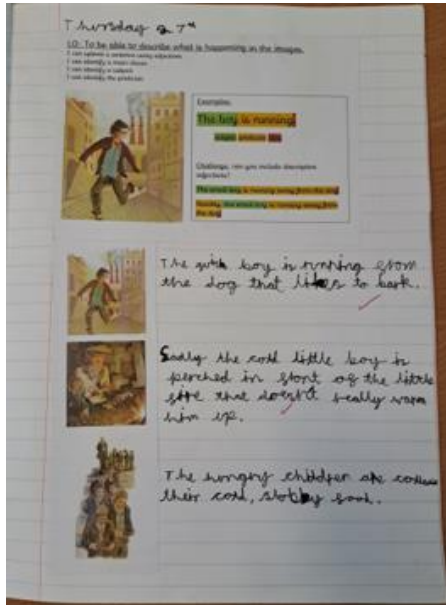 Thursday 27th
LO: To be able to describe what is happening in the images.
I can uplevel a sentence using adjectives
I can identify a main clause
I can identify a subject
I can identify the predicate
Examples:
The boy is running.
subject predicate
Challenge: can you include descriptive
adjectives?
The small boy is running away from the dog
Quickly, the small boy is running away from
the dog
The boy is running from
the dog that likes to bark.
Sadly the cold little boy is
perched in front of the little
fire that doesn't really warm
him up.
The hungry children are
their cold, food.